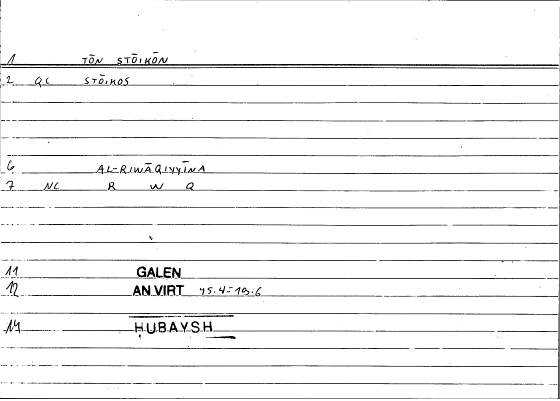 1 TŌN STŌIKŌN
2 QC STŌIKOS
6 AL-RIWĀQIYYĪNA
7 NC R W Q
11 GALEN
12 AN VIRT 45.4=19.6
14 HUBAYSH